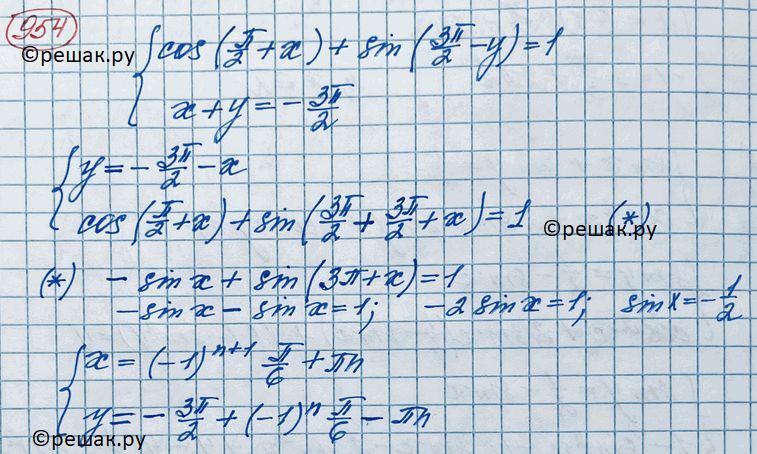 954
©решак.ру
{ cos(π/2 + x) + sin(3π/2 - y) = 1
x + y = - 3π/2
{ y = - 3π/2 - x
cos(π/2 + x) + sin(3π/2 + 3π/2 + x) = 1 (*)
©решак.ру
(*) - sin x + sin(3π + x) = 1
- sin x - sin x = 1; - 2 sin x = 1; sin x = - 1/2
{ x = (-1)^(n+1) π/6 + πn
y = - 3π/2 + (-1)^n π/6 - πn
©решак.ру